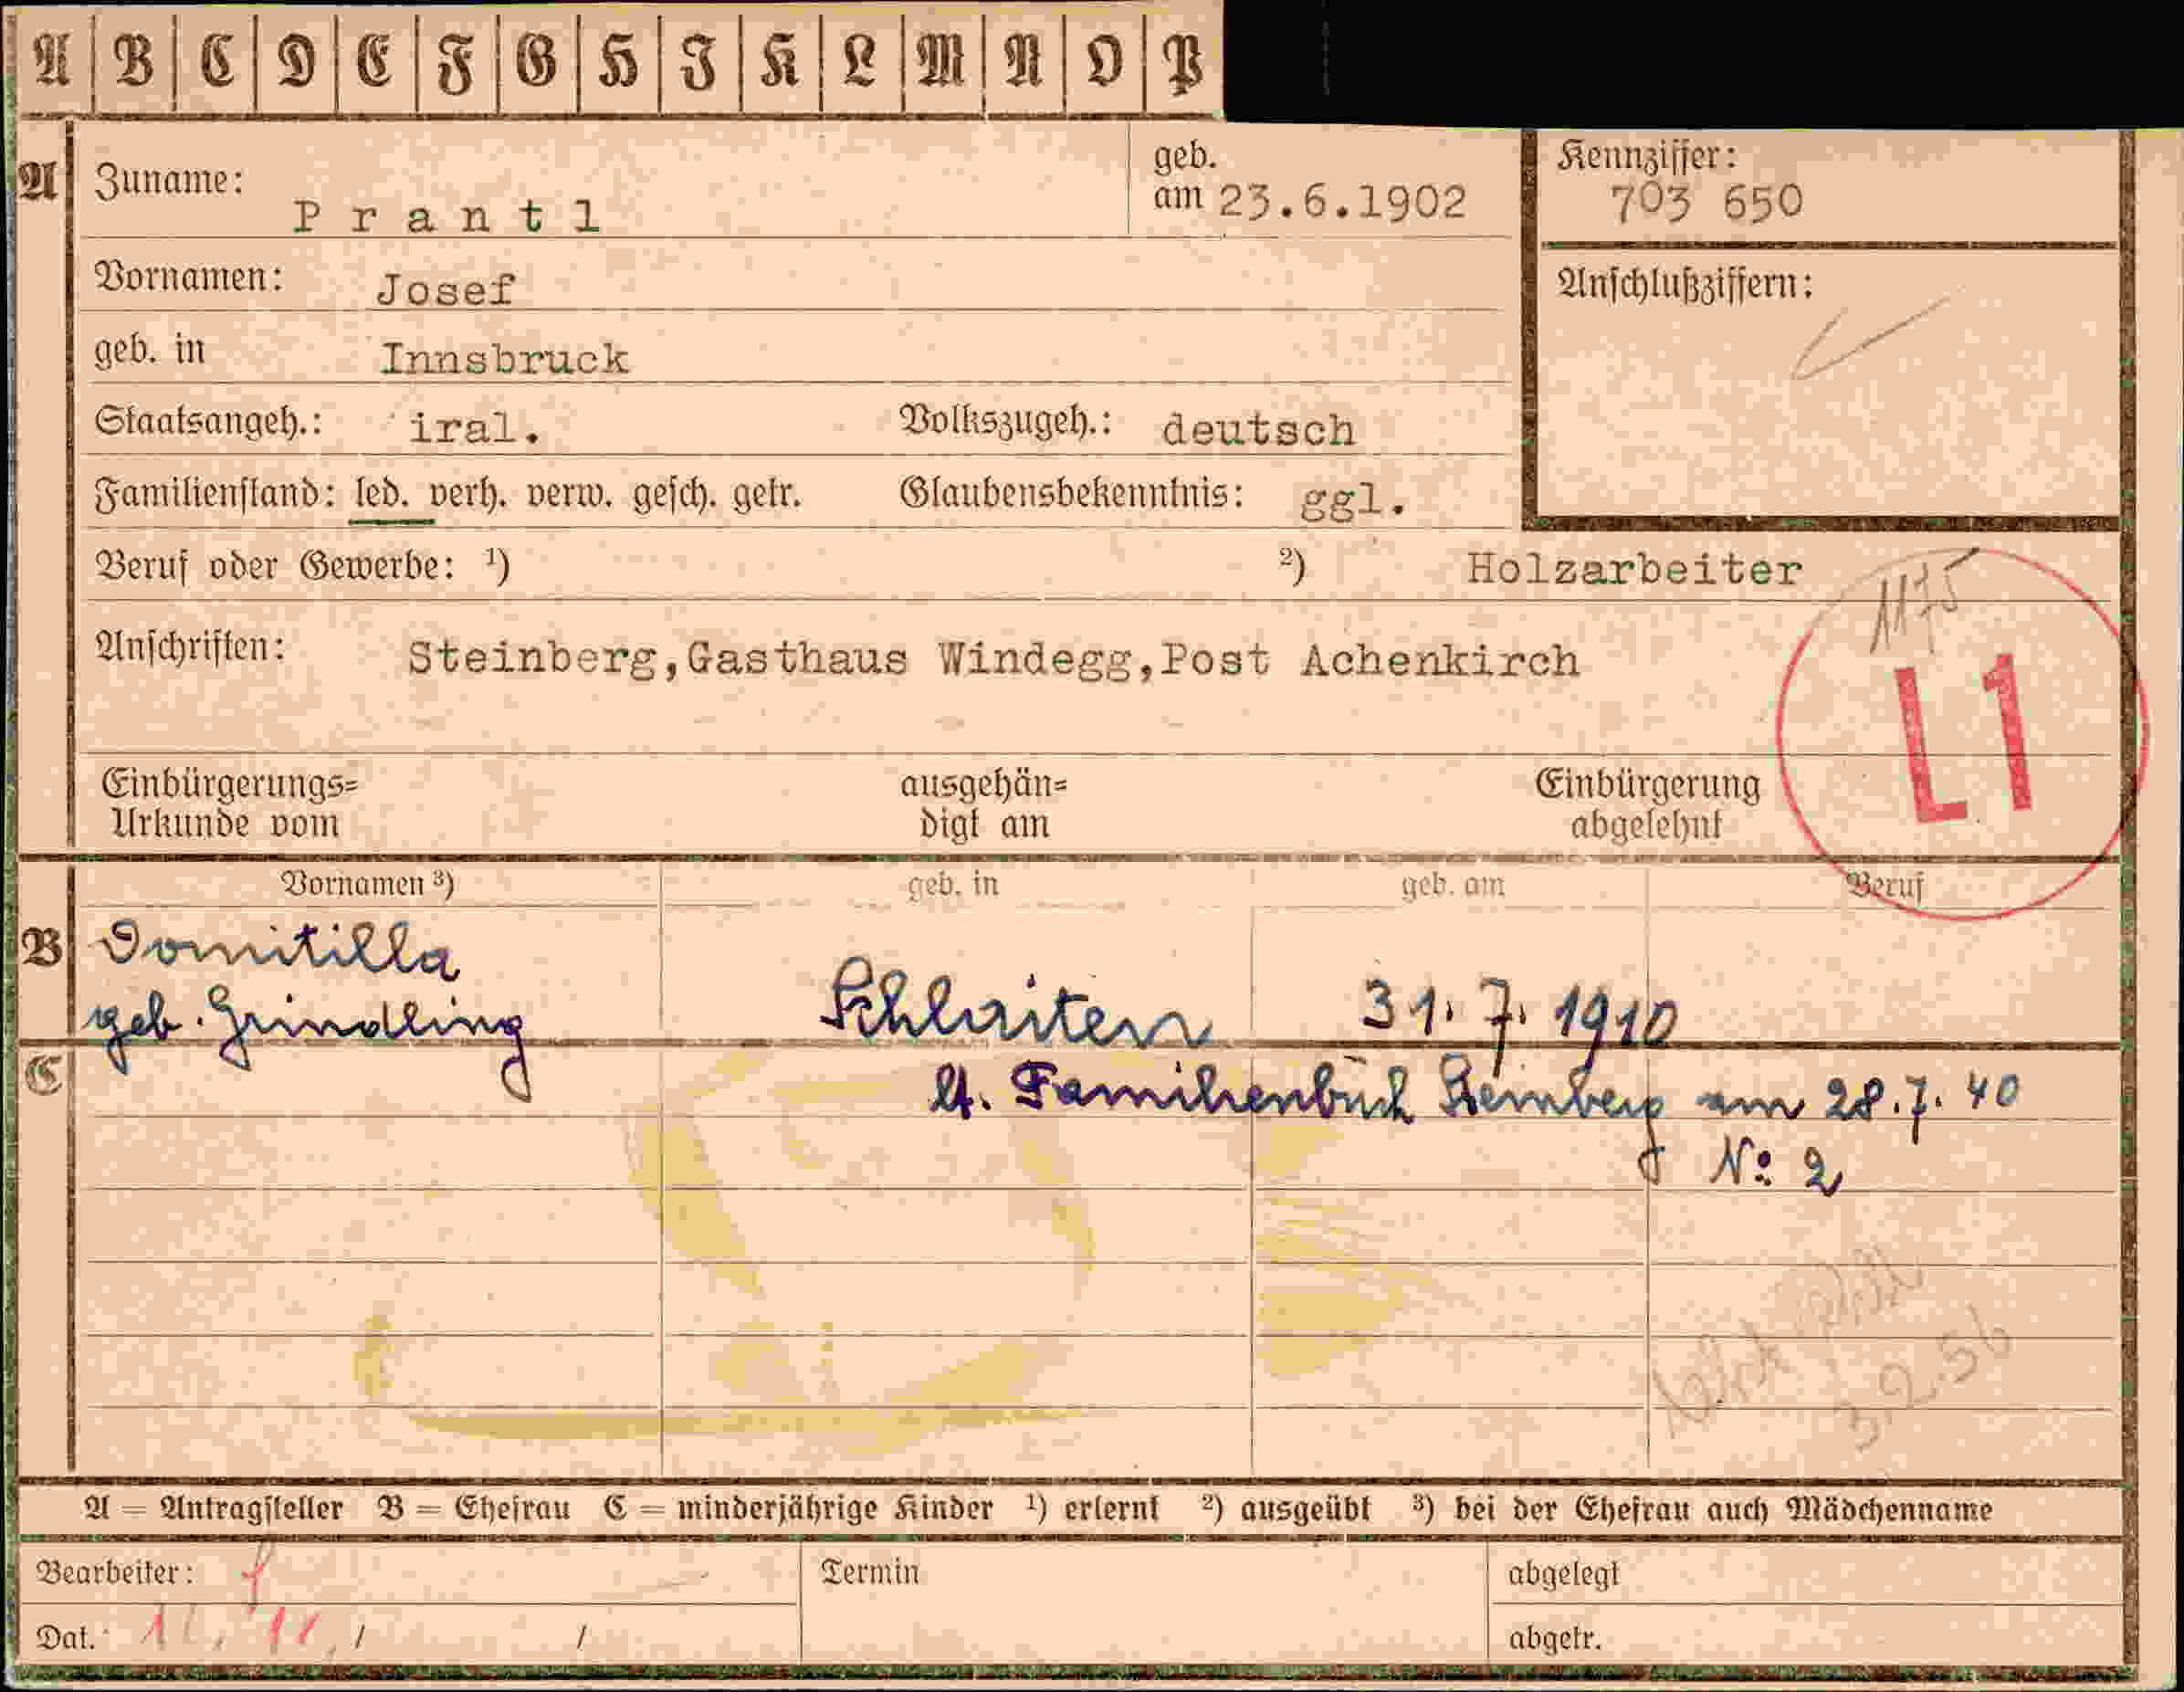 A B C D E F G H I K L M N O P
A Zuname: Prantl
geb. am 23.6.1902
Kennziffer: 703 650
Vornamen: Josef
Anschlußziffern:
geb. in Innsbruck
Staatsangeh.: iral. Volkszugeh.: deutsch
Familienstand: led. verh. verw. gesch. getr. Glaubensbekenntnis: ggl.
Beruf oder Gewerbe: ¹) ²) Holzarbeiter
1175
L1
Anschriften: Steinberg,Gasthaus Windegg,Post Achenkirch
Einbürgerungs= ausgehän= Einbürgerung
Urkunde vom digt am abgelehnt
Vornamen ³) geb. in geb. am Beruf
B Domitilla
geb. Gründling Schlaiten 31. 7. 1910
C lt. Familienbuch Steinberg am 28.7.40
No 2
3.2.56
A = Antragsteller B = Ehefrau C = minderjährige Kinder ¹) erlernt ²) ausgeübt ³) bei der Ehefrau auch Mädchenname
Bearbeiter: Termin abgelegt
Dat. / / abgetr.